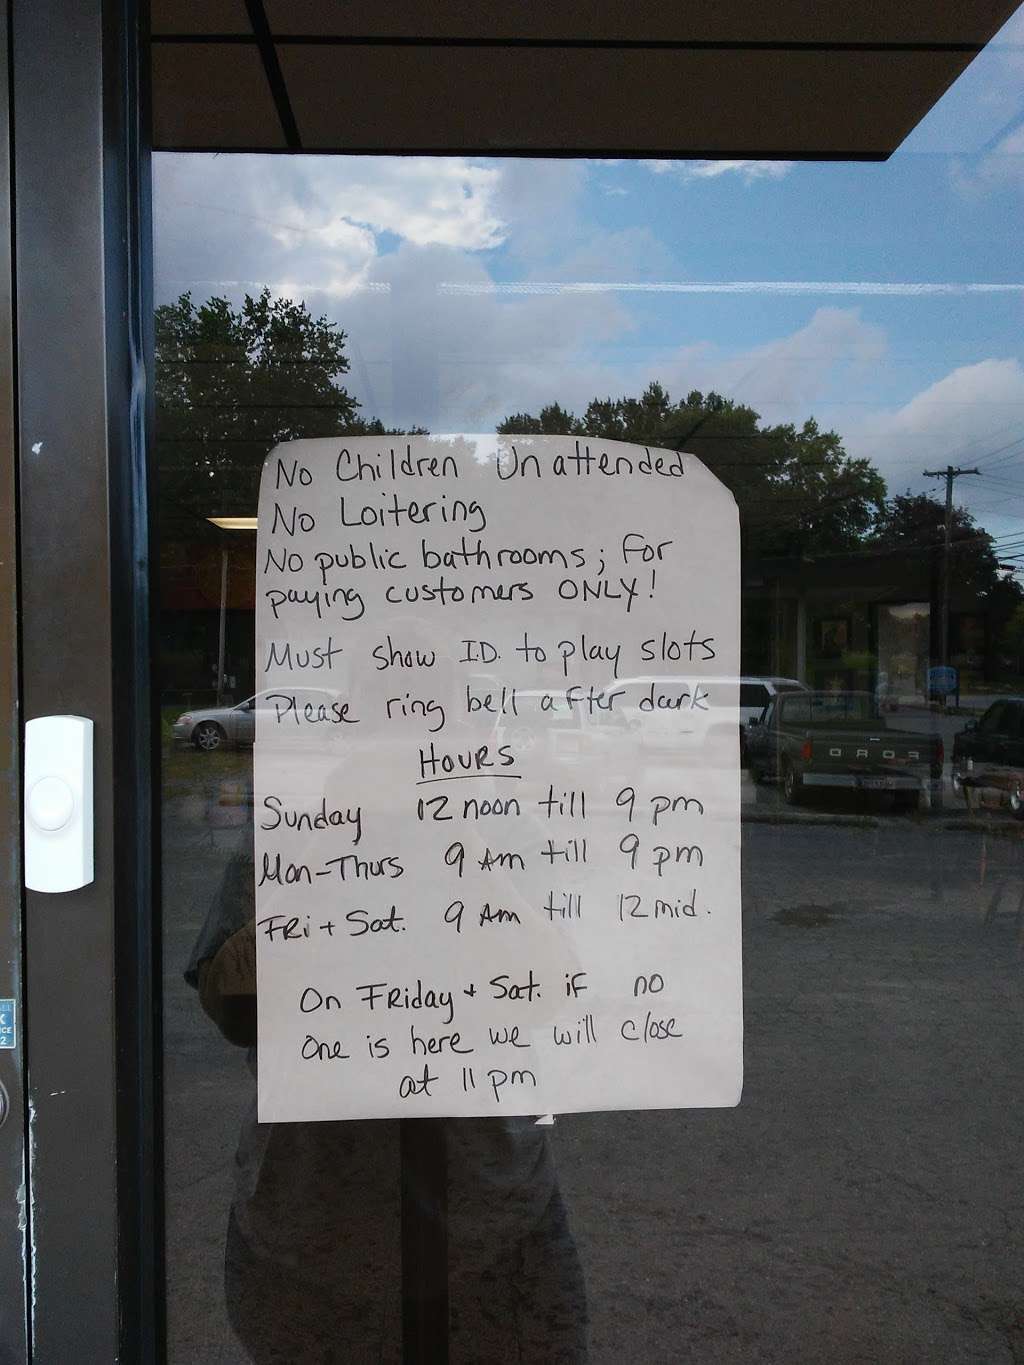 No Children Unattended
No Loitering
No public bathrooms; For
paying customers ONLY!
Must show I.D. to play slots
Please ring bell after dark
HOURS
Sunday 12 noon till 9 pm
Mon-Thurs 9 Am till 9 pm
FRi + Sat. 9 Am till 12 mid.
On FRiday + Sat. if no
one is here we will close
at 11 pm
FORD